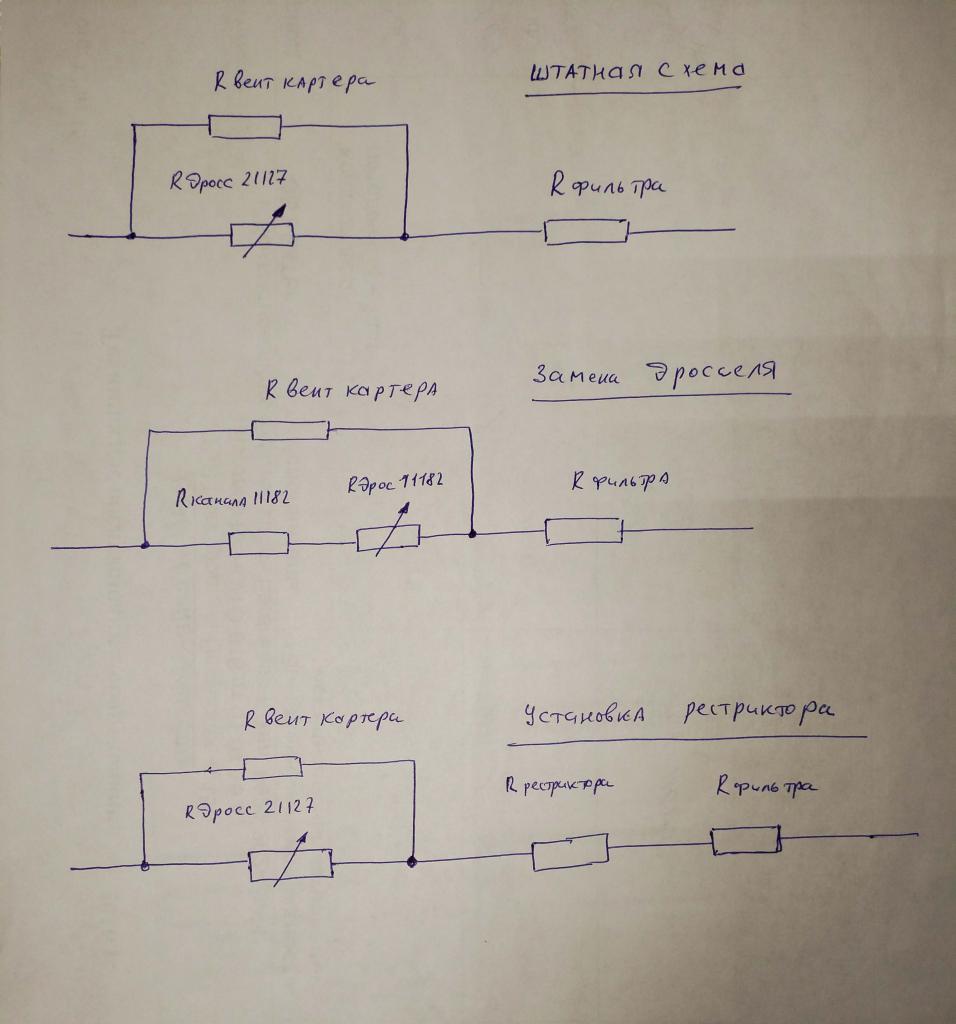 R вент картера
Штатная схема
R дросс 21127
R фильтра
R вент картера
Замена дросселя
R канала 11182
R дрос 11182
R фильтра
R вент картера
Установка рестриктора
R дросс 21127
R рестриктора
R фильтра